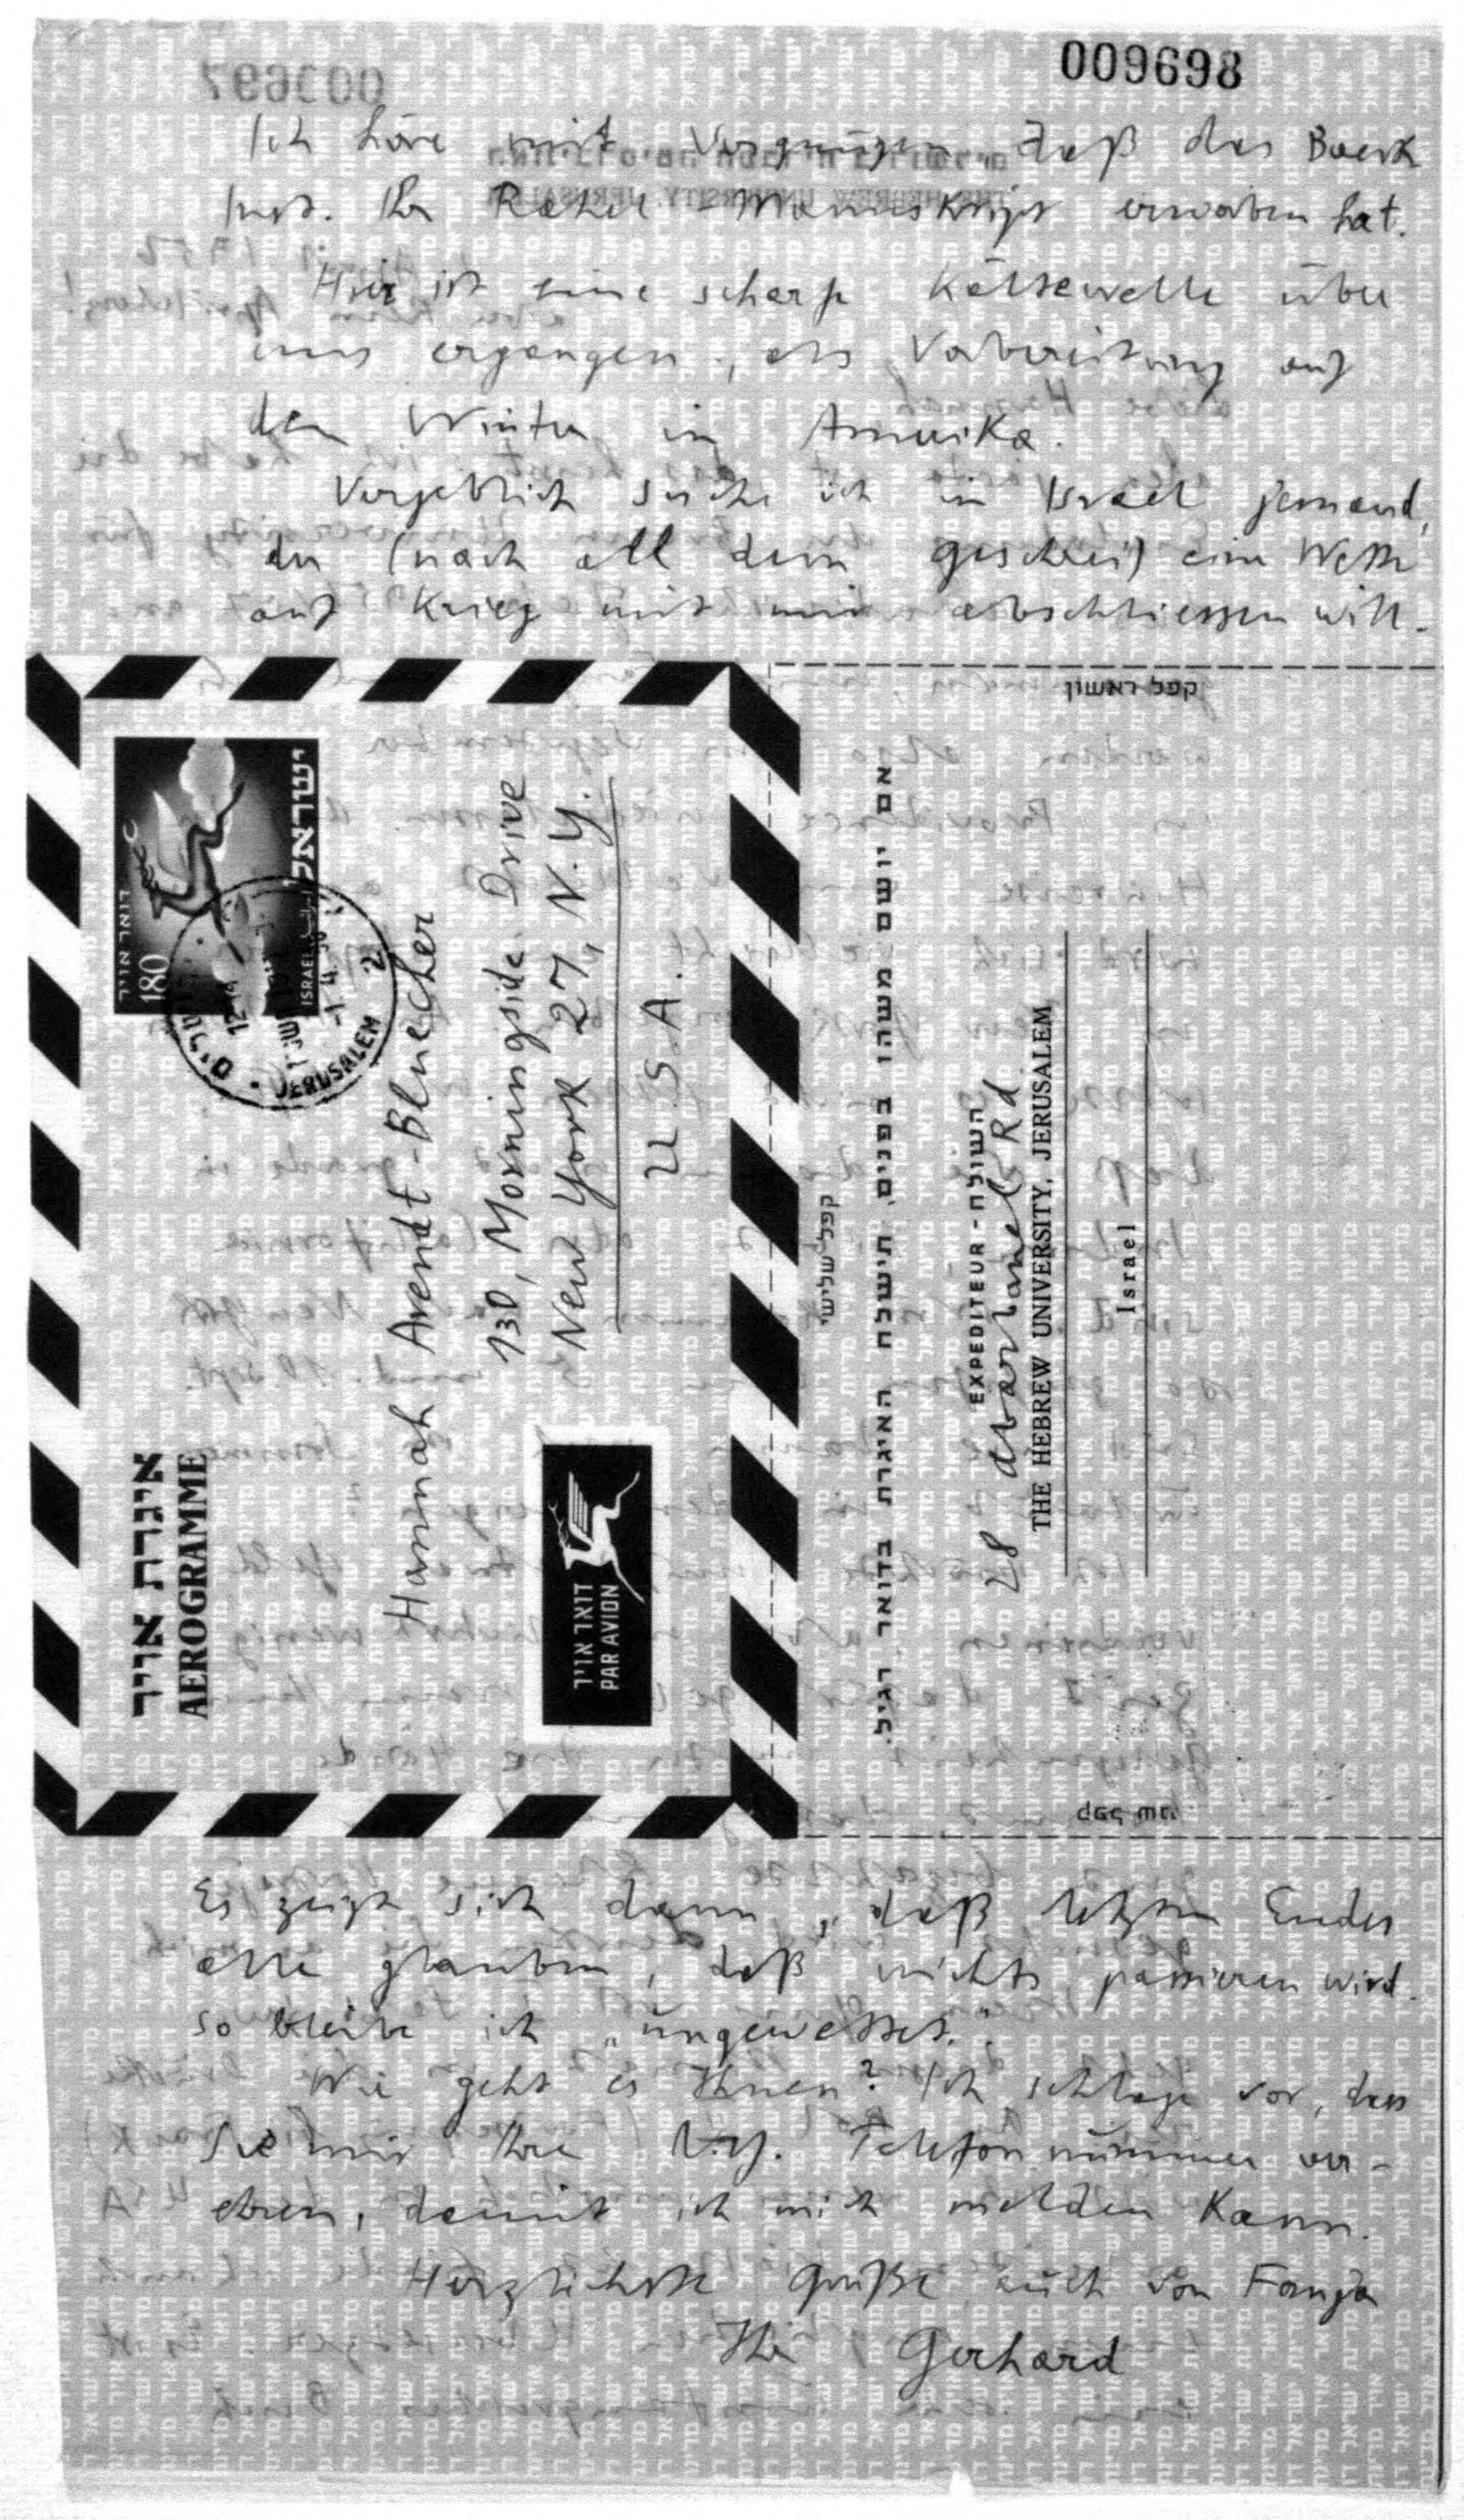 009698
Ich höre mit Vergnügen daß das Baeck
Inst. Ihr Rahel-Manuskript erworben hat.
Hier ist eine scharfe Kältewelle über
uns ergangen, als Vorbereitung auf
den Winter in Amerika.
Vergeblich suche ich in Israel jemand,
der (nach all dem Geschrei) eine Wette
auf Krieg mit mir abschliessen will.
קפל ראשון
ישראל
ISRAEL
דואר אויר
180
JERUSALEM
2
Hannah Arendt-Bluecher
130, Morningside Drive
New York 27, N.Y.
U.S.A.
איגרת אויר
AEROGRAMME
דואר אויר
PAR AVION
קפל שלישי
אם יושם משהו בפנים, תישלח האיגרת בדואר רגיל.
EXPEDITEUR - השולח
28 Abarbanel Rd
THE HEBREW UNIVERSITY, JERUSALEM
Israel
קפל שני
Es zeigt sich dann, daß letzten Endes
alle glauben, daß nichts passieren wird.
So bleibe ich „ungewettet."
Wie geht es Ihnen? Ich schlage vor, dass
Sie mir Ihre N.Y. Telefonnummer ver-
ehren, damit ich mich melden kann.
Herzlichste Grüße auch von Fanja
Ihr Gerhard